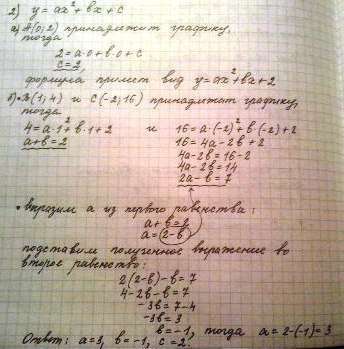 2) y = ax² + bx + c
а) A(0; 2) принадлежит графику,
тогда
2 = a·0 + b·0 + c
c = 2
формула примет вид y = ax² + bx + 2
б) B(1; 4) и C(-2; 16) принадлежат графику,
тогда
4 = a·1² + b·1 + 2 и 16 = a·(-2)² + b·(-2) + 2
a + b = 2 16 = 4a - 2b + 2
4a - 2b = 16 - 2
4a - 2b = 14
2a - b = 7
• выразим a из первого равенства:
a + b = 2
a = (2 - b)
подставим полученное выражение во
второе равенство:
2(2 - b) - b = 7
4 - 2b - b = 7
-3b = 7 - 4
-3b = 3
b = -1, тогда a = 2 - (-1) = 3
Ответ: a = 3, b = -1, c = 2.